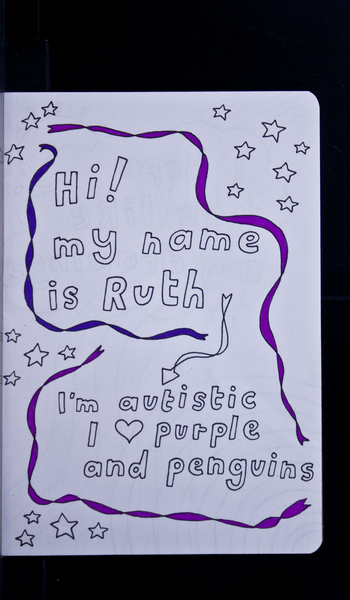 Hi!
my name
is Ruth
I'm autistic
I ♡ purple
and penguins